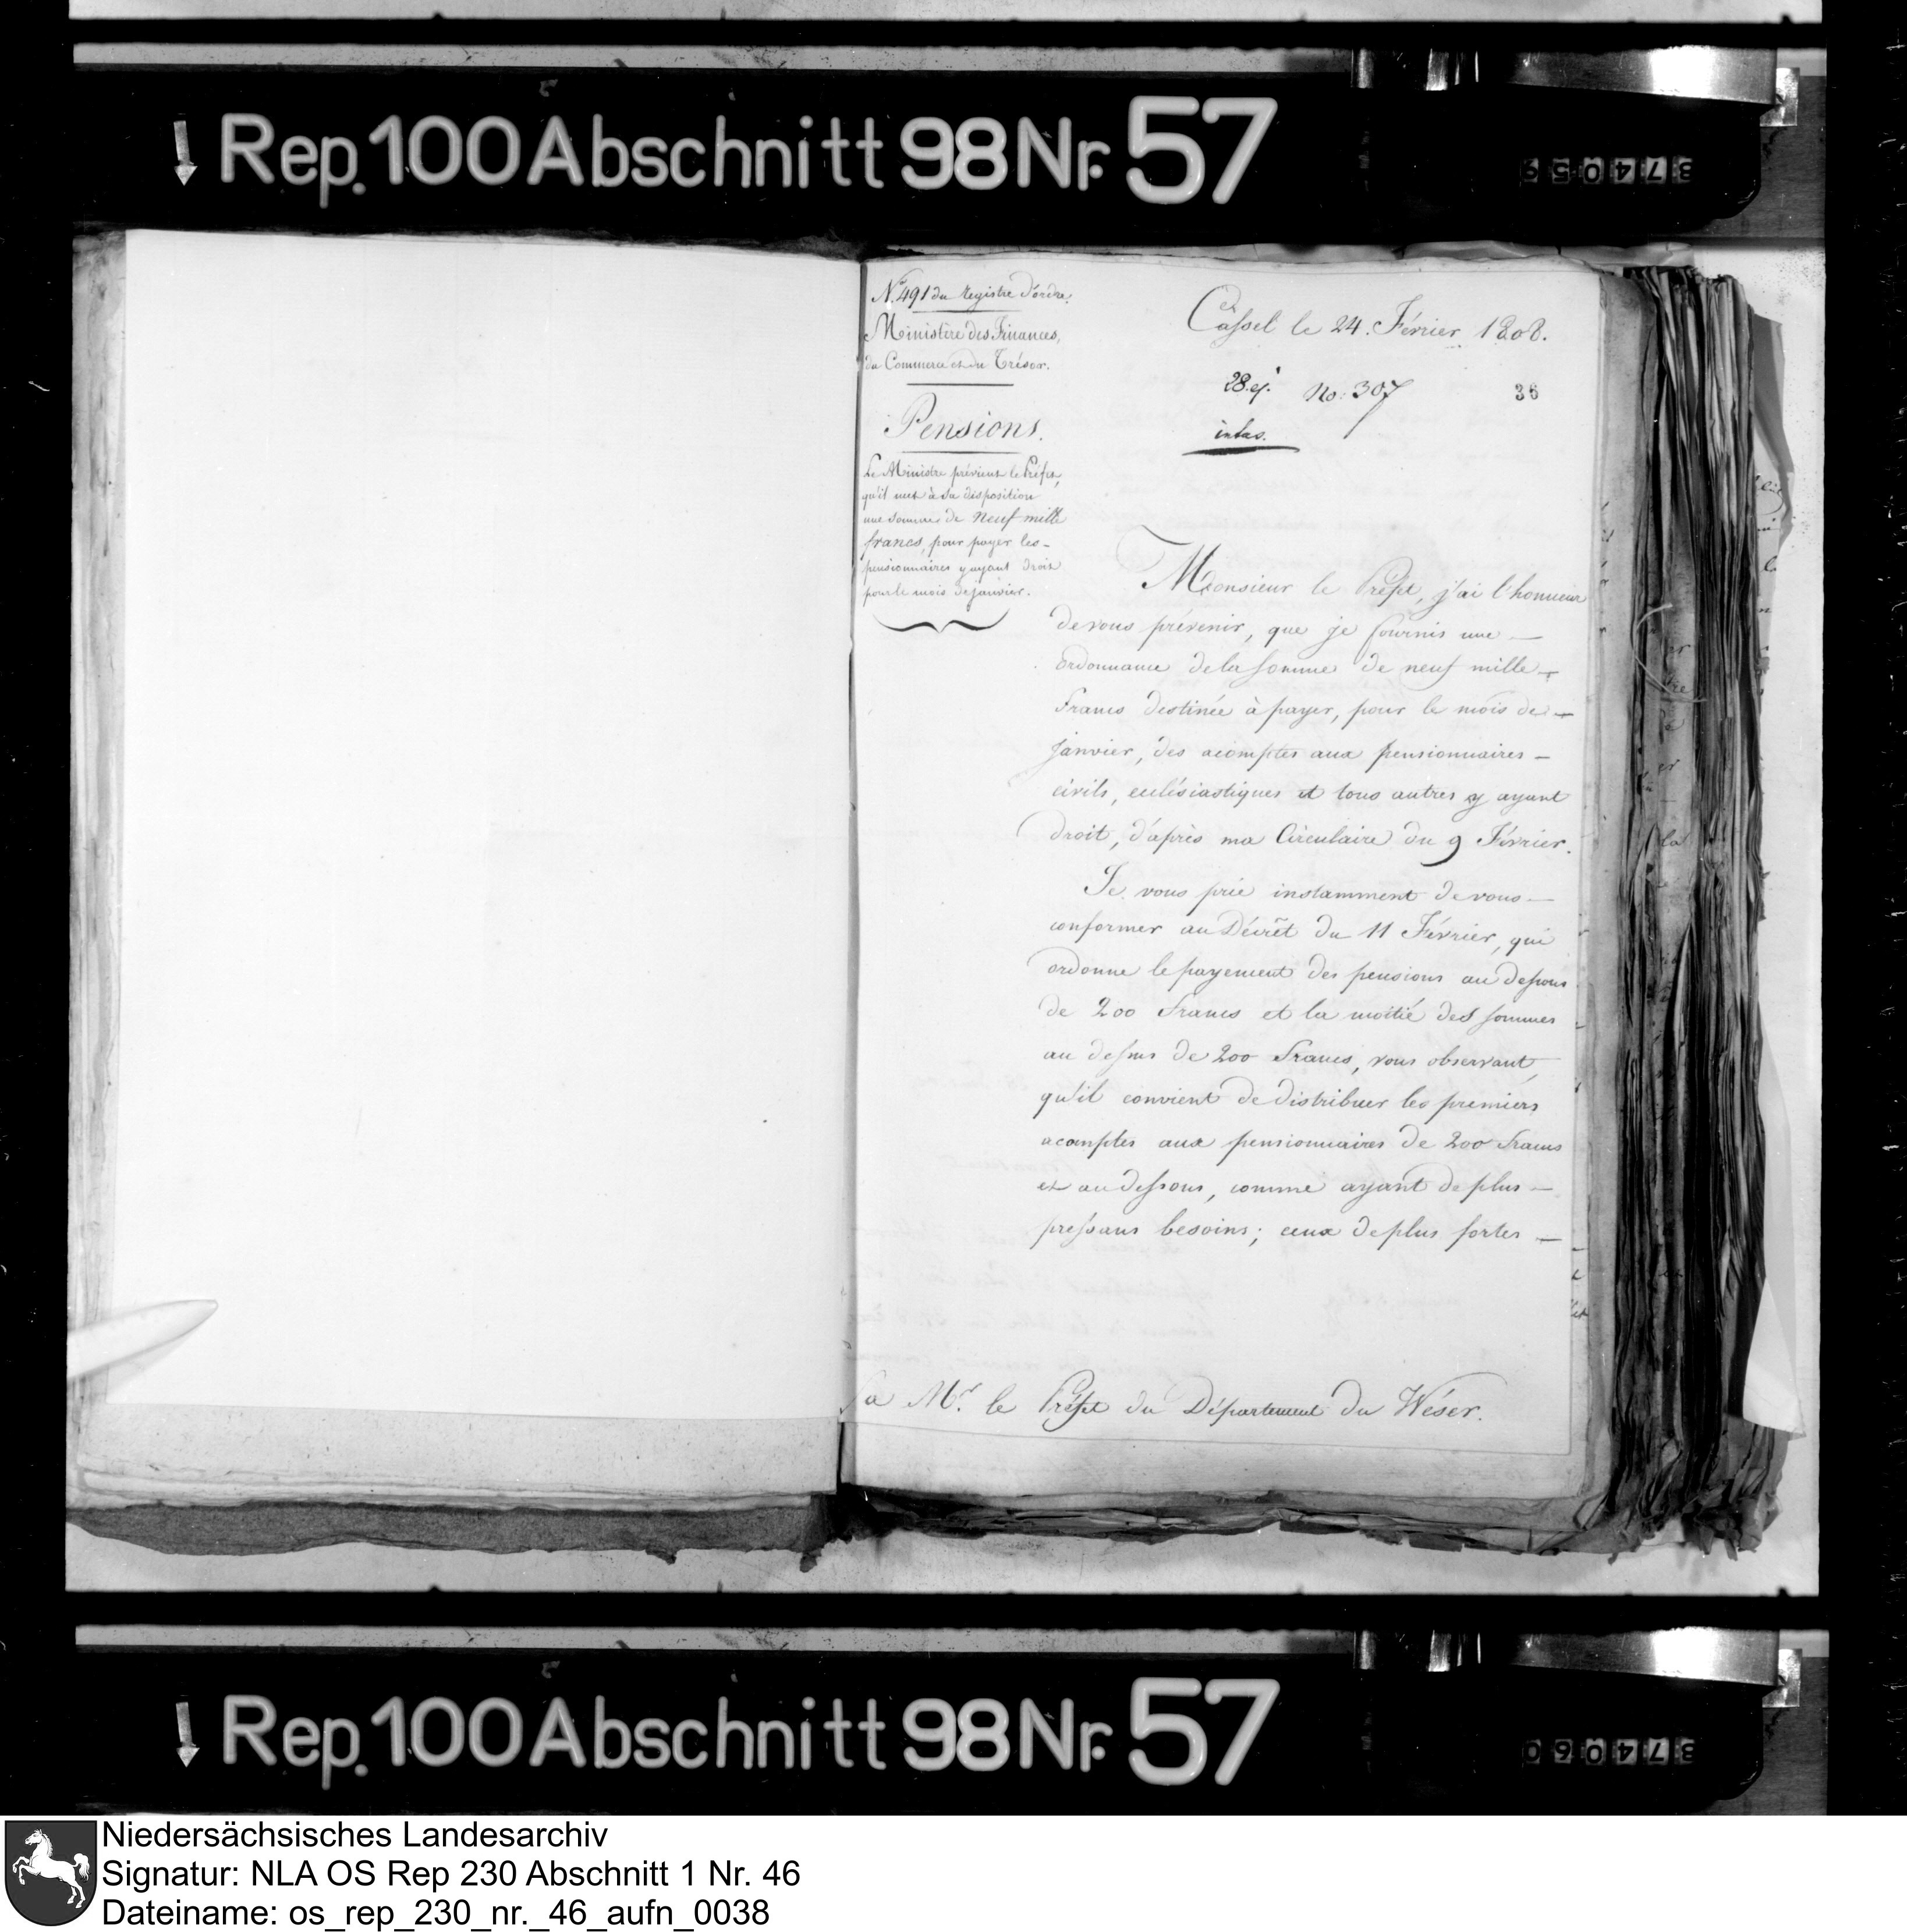 Rep. 100 Abschnitt 98 Nr. 57
374059
N.° 491 du Registre d'ordre.
Ministère des Finances,
du Commerce et du Trésor.
Pensions.
Le Ministre prévient le Préfet,
qu'il met à sa disposition
une somme de neuf mille
francs, pour payer les
pensionnaires y ayant droit
pour le mois de janvier.
Cassel le 24. Février 1808.
28. ej. No: 307
36
Monsieur le Préfet, j'ai l'honneur
de vous prévenir, que je fournis une
ordonnance de la somme de neuf mille
francs destinée à payer, pour le mois de
janvier, des acomptes aux pensionnaires
civils, eclésiastiques et tous autres y ayant
droit, d'après ma Circulaire du 9 Février.
Je vous prie instamment de vous
conformer au Décrêt du 11 Février, qui
ordonne le payement des pensions au dessous
de 200 francs et la moitié des sommes
au dessus de 200 francs, vous observant,
qu'il convient de distribuer les premiers
acomptes aux pensionnaires de 200 francs
et au dessous, comme ayant de plus
pressans besoins; ceux de plus fortes
a Mr. le Préfet du Département du Wéser.
Rep. 100 Abschnitt 98 Nr. 57
374060
Niedersächsisches Landesarchiv
Signatur: NLA OS Rep 230 Abschnitt 1 Nr. 46
Dateiname: os_rep_230_nr._46_aufn_0038